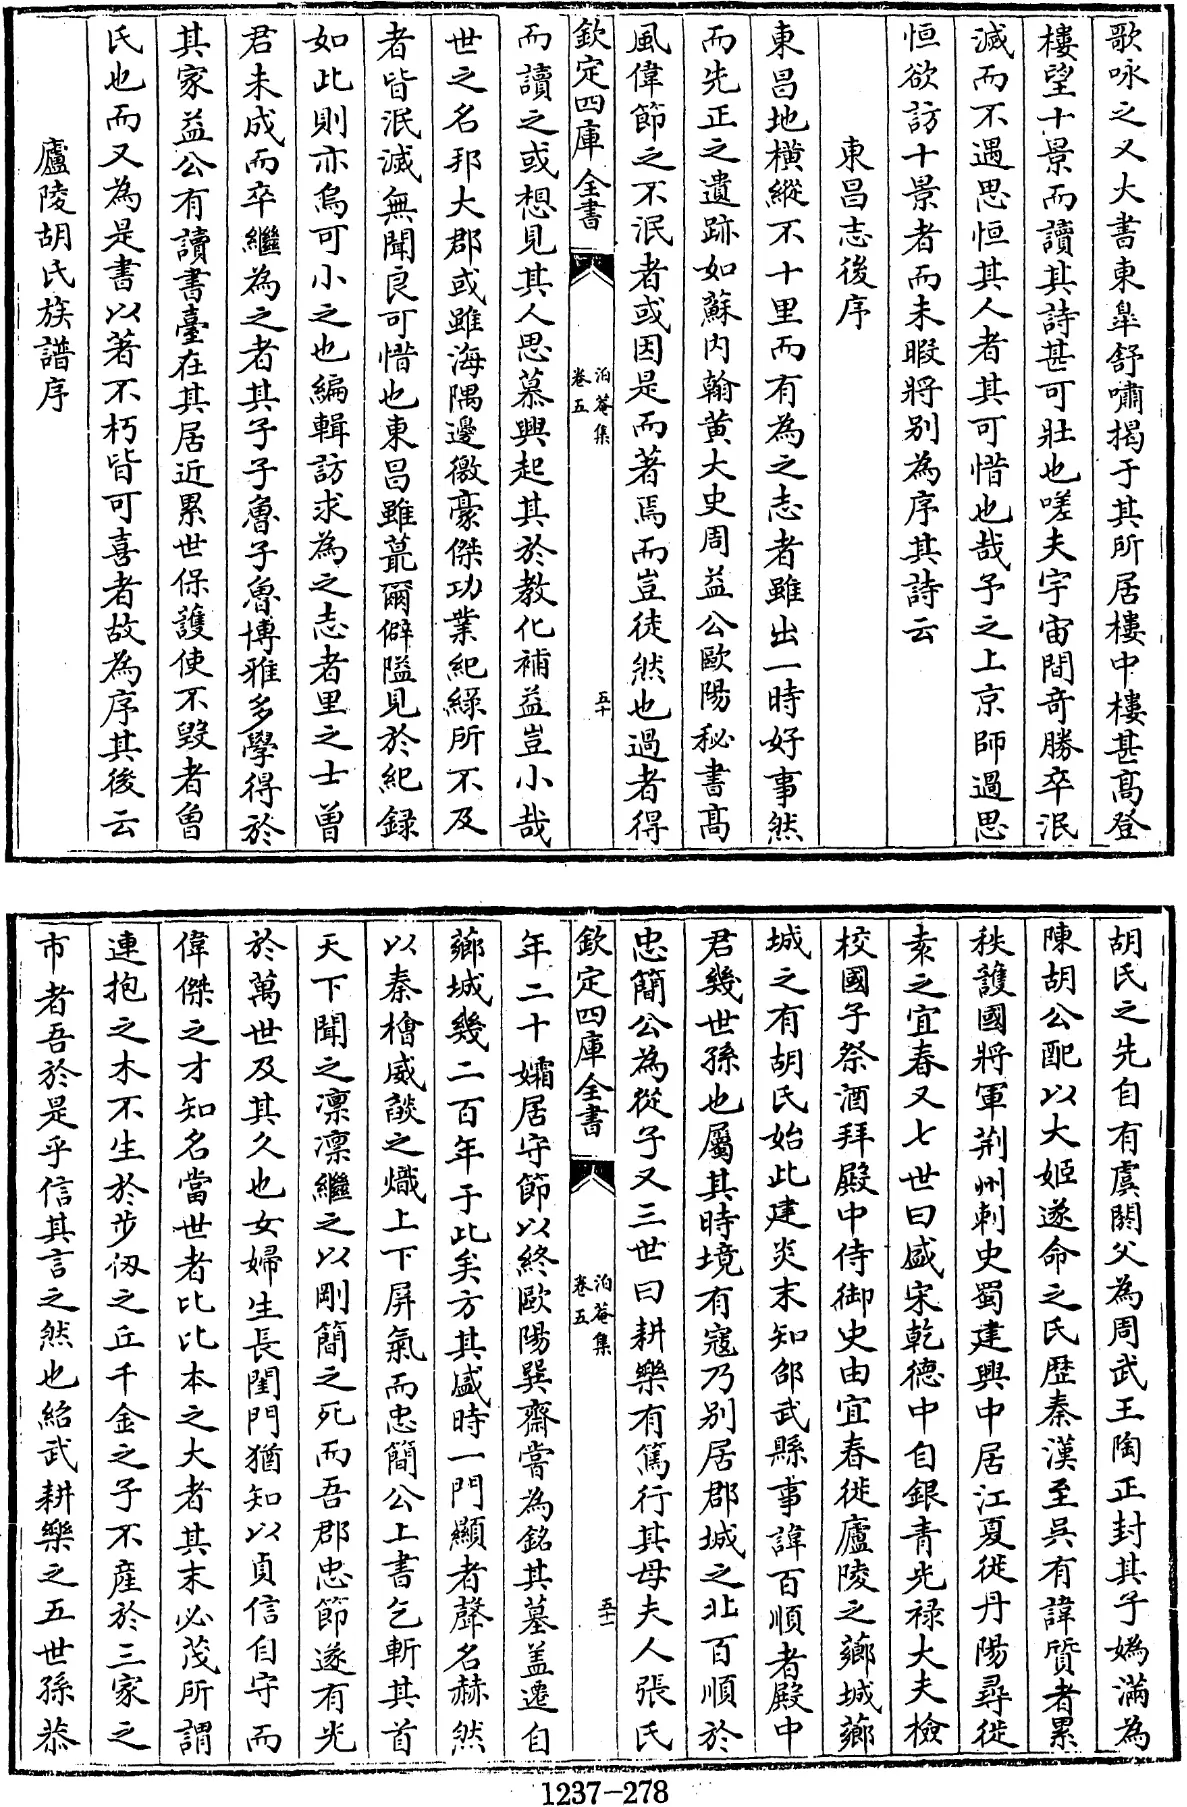 歌咏之又大書東臯舒嘯揭于其所居樓中樓甚高登
樓望十景而讀其詩甚可壯也嗟夫宇宙間奇勝卒泯
滅而不遇思恒其人者其可惜也哉予之上京師過思
恒欲訪十景者而未暇將别為序其詩云
東昌志後序
東昌地橫縱不十里而有為之志者雖出一時好事然
而先正之遺跡如蘇内翰黄大史周益公歐陽秘書高
風偉節之不泯者或因是而著焉而豈徒然也過者得
欽定四庫全書
泊菴集
卷五
五十
而讀之或想見其人思慕興起其於教化補益豈小哉
世之名邦大郡或雖海隅邊徼豪傑功業紀綠所不及
者皆泯滅無聞良可惜也東昌雖蕞爾僻隘見於紀録
如此則亦烏可小之也編輯訪求為之志者里之士曾
君未成而卒繼為之者其子子魯子魯博雅多學得於
其家益公有讀書臺在其居近累世保護使不毀者曾
氏也而又為是書以著不朽皆可喜者故為序其後云
廬陵胡氏族譜序
胡氏之先自有虞閼父為周武王陶正封其子媯滿為
陳胡公配以大姬遂命之氏歴秦漢至吳有諱質者累
秩護國將軍荆州刺史蜀建興中居江夏徙丹陽尋徙
袁之宜春又七世曰盛宋乾德中自銀青光禄大夫檢
校國子祭酒拜殿中侍御史由宜春徙廬陵之薌城薌
城之有胡氏始此建炎末知邵武縣事諱百順者殿中
君幾世孫也屬其時境有寇乃别居郡城之北百順於
忠簡公為從子又三世曰耕樂有篤行其母夫人張氏
欽定四庫全書
泊菴集
卷五
五十一
年二十孀居守節以終歐陽巽齋嘗為銘其墓盖遷自
薌城幾二百年于此矣方其盛時一門顯者聲名赫然
以秦檜威談之熾上下屏氣而忠簡公上書乞斬其首
天下聞之凛凛繼之以剛簡之死而吾郡忠節遂有光
於萬世及其久也女婦生長閨門猶知以貞信自守而
偉傑之才知名當世者比比本之大者其末必茂所謂
連抱之木不生於步仭之丘千金之子不産於三家之
市者吾於是乎信其言之然也紹武耕樂之五世孫恭
1237-278